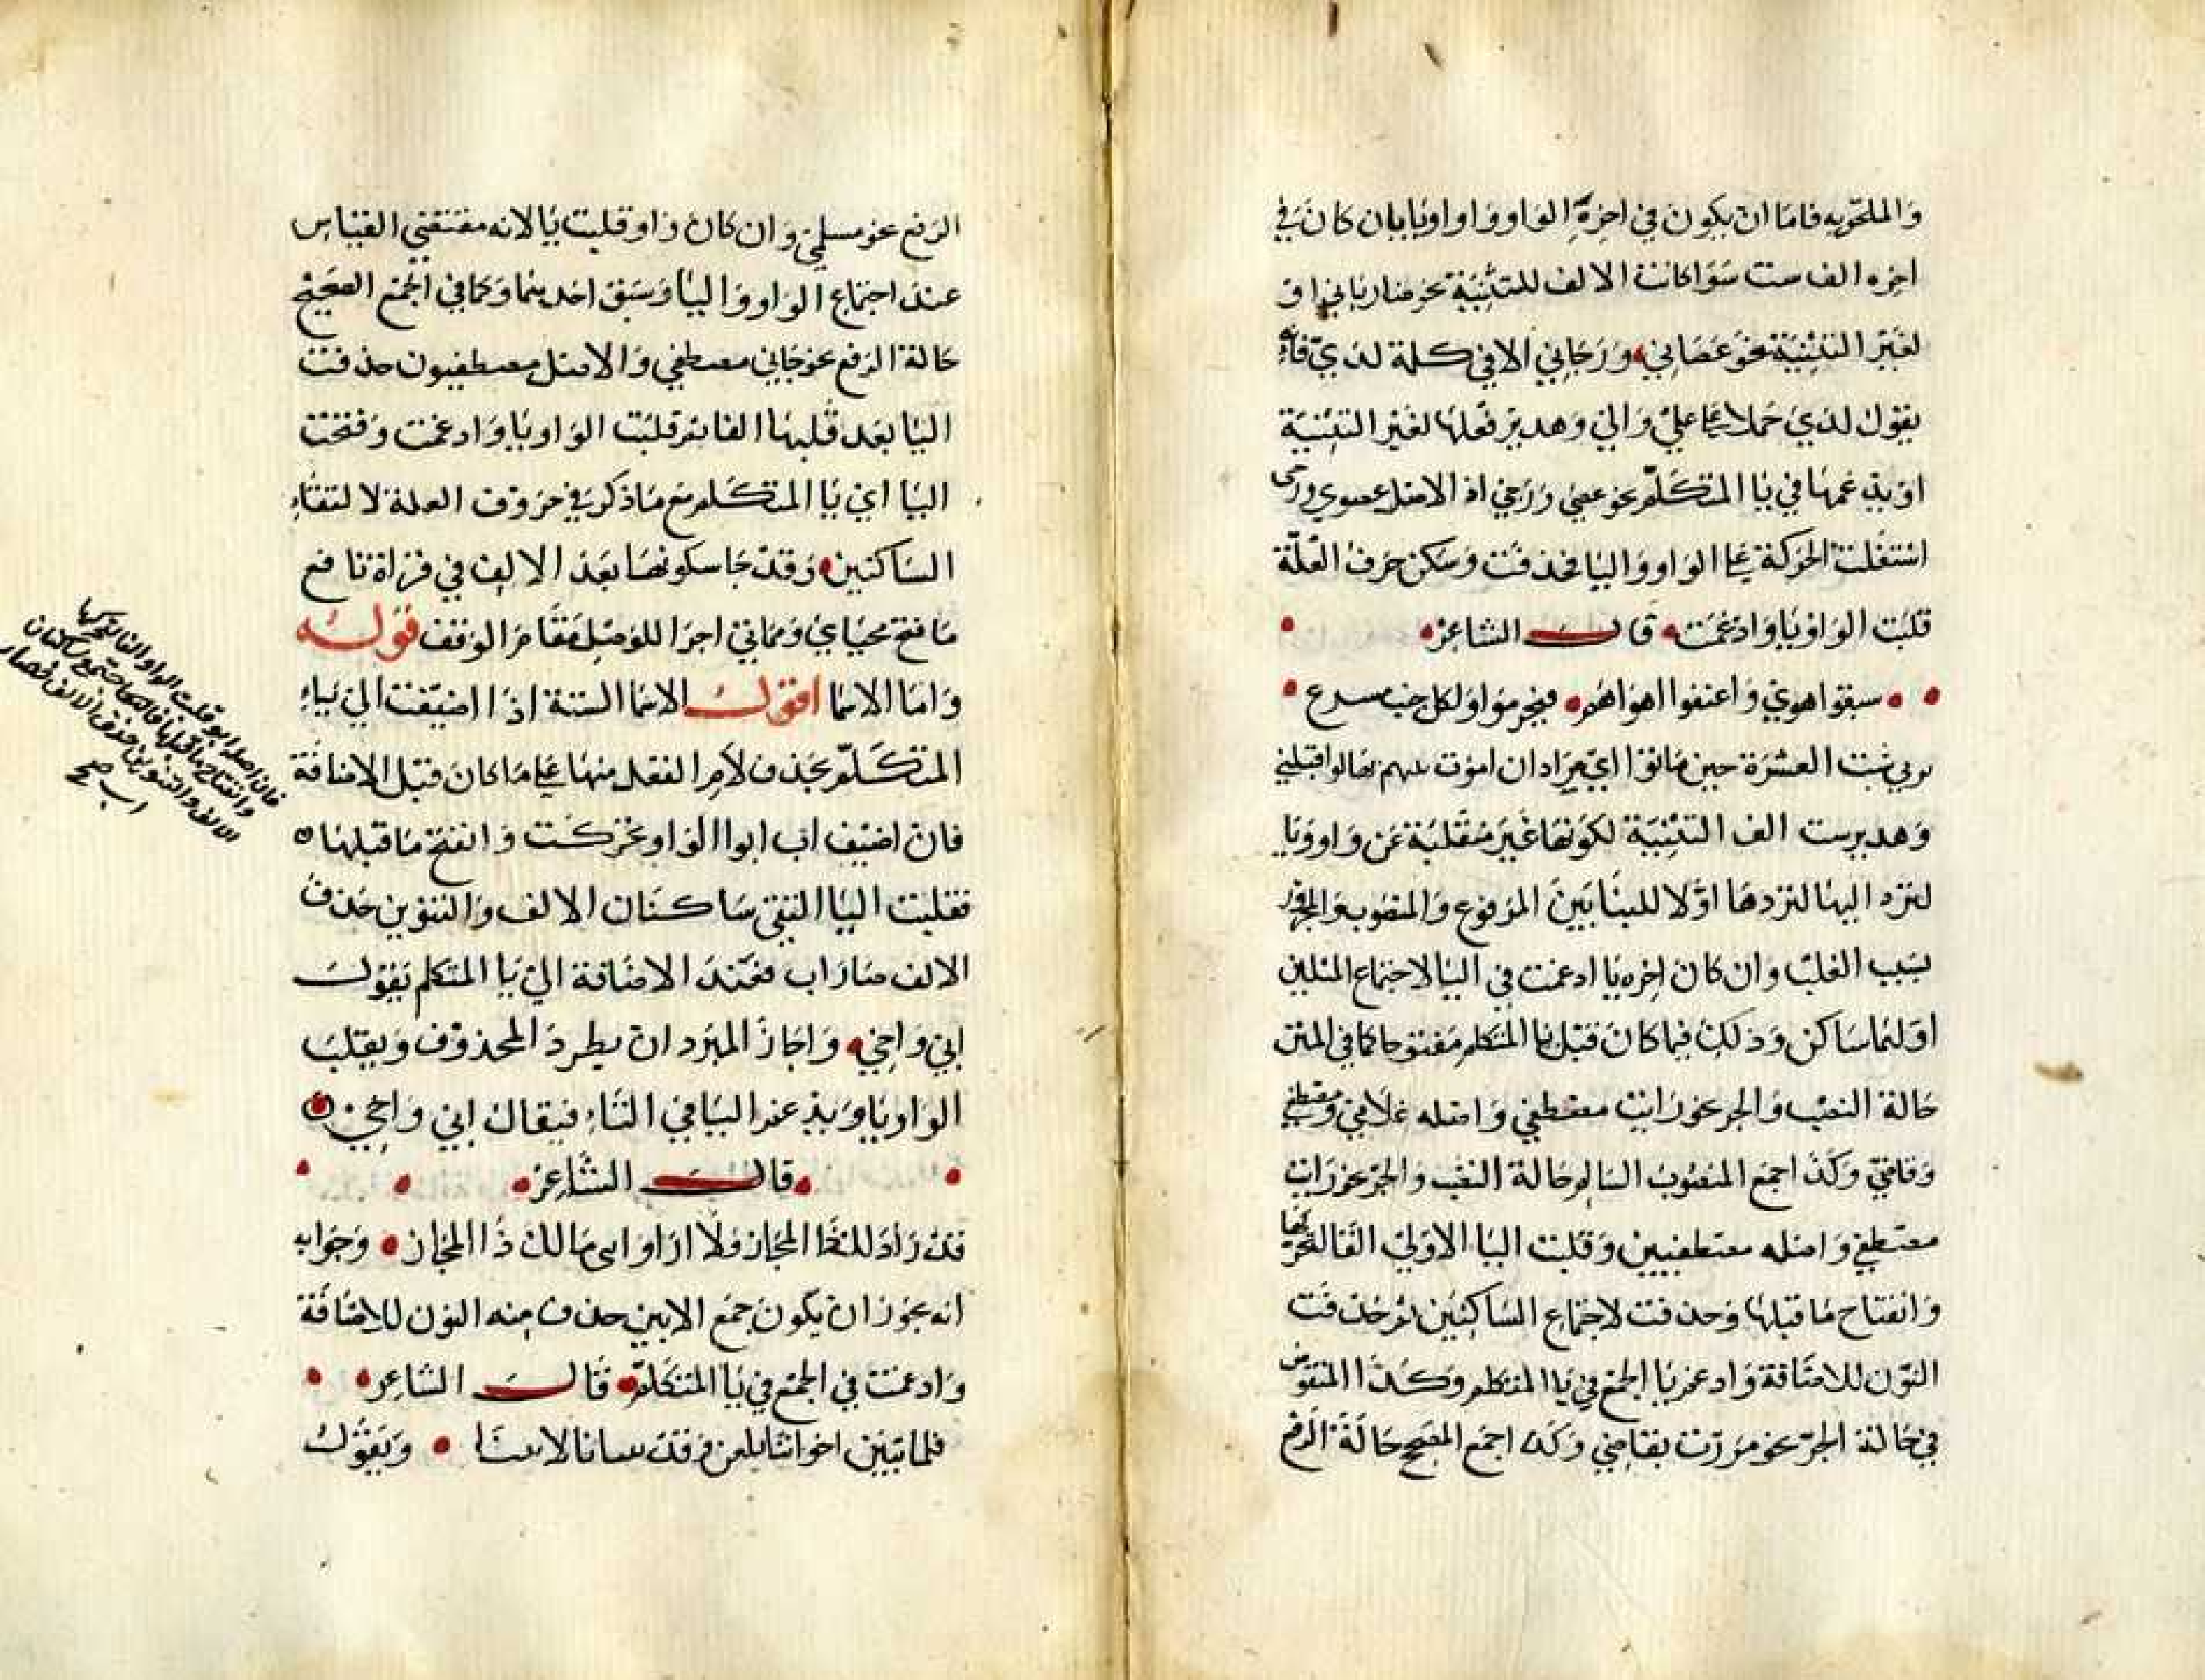 والملحق به فاما ان يكون في اخره الواو واوا او يا بان كان في
اخره الف ست سوا كانت الالف للتثنية نحو ضارباني او
لغير التثنية نحو عصاني ورحاني الا في كلمة لدي فانه
يقول لدي حملا على علي والي وهديل قلبها لغير التثنية
او يدغمها في يا المتكلم نحو عصي ورحي اذ الاصل عصوي ورحي
استقلت الحركة على الواو واليا فحذفت وسكن حرف العلة
قلبت الواو يا وادغمت قال الشاعر
سبقوا هوي واعنقوا اهواهم فخرموا ولكل جنب مسرع
حين ماتوا اي مراد ان اموت قبلهم
الف التثنية لكونها غير منقلبة عن واو ويا
لترد اليها لتردها اولا للبنا بين المرفوع والمنصوب والمجرور
بسبب القلب وان كان اخره يا ادغمت في اليا لاجتماع المثلين
اولهما ساكن وذلك فيما كان قبل يا المتكلم مفتوحا كما في المثنى
حالة النصب والجر نحو رايت مصطفي واصله غلامي ومصطفي
وقاضي وكذا جمع المنصوب السالم حالة النصب والجر نحو رايت
مصطفي واصله مصطفيين وقلبت اليا الاولي الفا لتحركها
وانفتاح ما قبلها وحذفت لاجتماع الساكنين ثم حذفت
النون للاضافة وادغم يا الجمع في يا المتكلم وكذا المنقوص
في حالة الجر نحو مررت بقاضي وكذا جمع المصحح حالة الرفع
الرفع نحو مسلمي وان كان واو قلبت يا لانه مقتضي القياس
عند اجتماع الواو واليا وسبق احديهما وكما في الجمع الصحيح
حالة الرفع نحو جاني مصطفي والاصل مصطفيون حذفت
اليا بعد قلبها الفا ثم قلبت الواو يا وادغمت وفتحت
اليا اي يا المتكلم مع ما ذكر في حروف العلة لالتقاء
الساكنين وقد جا سكونها بعد الالف في قراة نافع
ما فتح محياي ومماتي اجرا للوصل مقام الوقف قوله
واما الاسما اقول الاسما الستة اذا اضيفت الي ياء
المتكلم بحذف لام الفعل منها على ما كان قبل الاضافة
فان اضيف اب ابوا الواو تحركت وانفتح ما قبلها ه
فقلبت اليا التقي ساكنان الالف والتنوين حذف
الالف صار اب فعند الاضافة الي يا المتكلم يقول
ابي واخي واجاز المبرد ان يطرد المحذوف ويقلب
الواو يا ويدغم اليا في الثاء فيقال ابي واخي
قال الشاعر
المجاز ولا ارا وابي مالك ذا المجاز وجوابه
انه يجوز ان يكون جمع الابين حذف منه النون للاضافة
وادغمت في الجمع في يا المتكلم قال الشاعر
فلما تبين اخواتنا ويقول
فان اصله ابو قلبت الواو الفا لتحركها
وانفتاح ما قبلها فالتقا ساكنان
الالف والتنوين حذف الالف فصار
اب صح